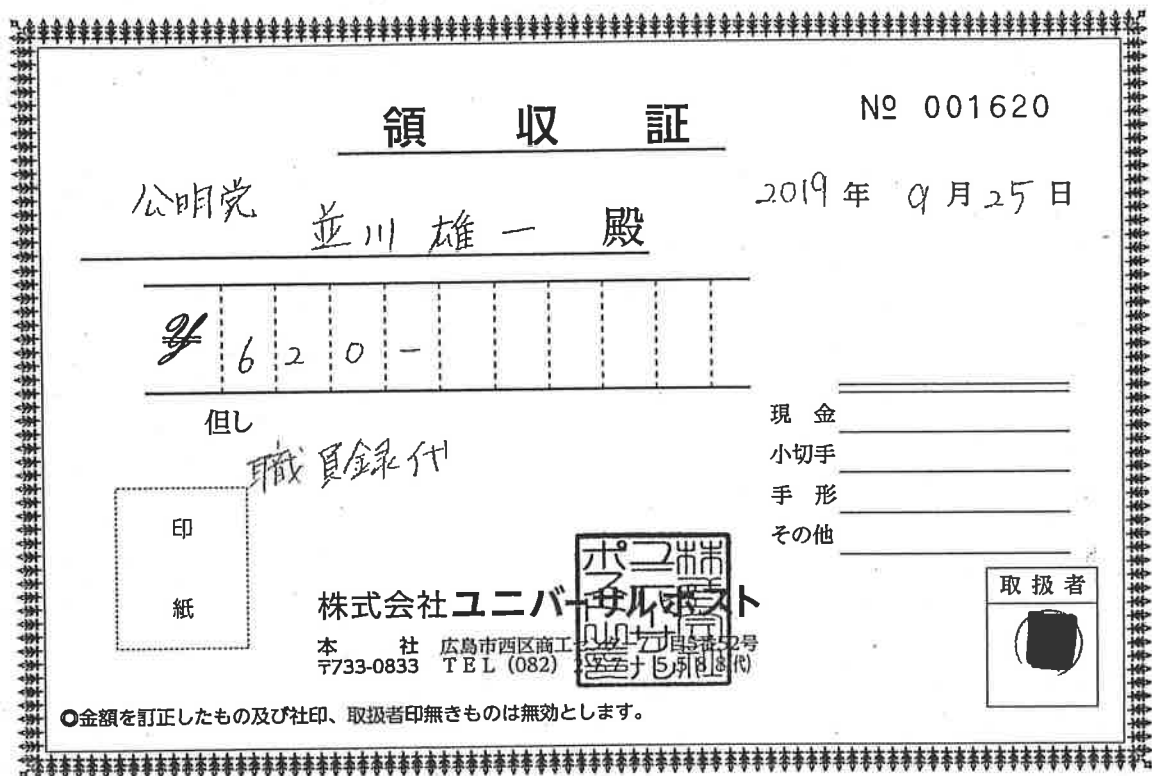 領収証
№ 001620
2019年 9月25日
公明党
並川 雄一 殿
¥620-
但し
職員録代
現金
小切手
手形
その他
印
紙
取扱者
株式会社ユニバーサルポスト
本社 広島市西区商工センター7丁目5番52号
〒733-0833 TEL (082) 277-5588(代)
○金額を訂正したもの及び社印、取扱者印無きものは無効とします。